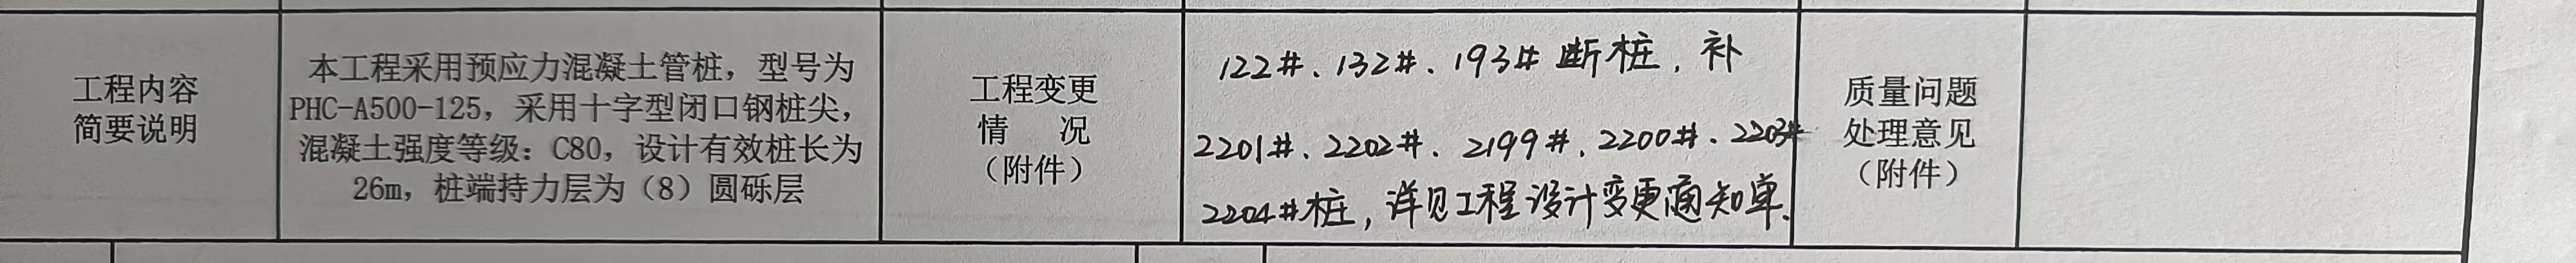 工程内容
简要说明
本工程采用预应力混凝土管桩，型号为
PHC-A500-125，采用十字型闭口钢桩尖，
混凝土强度等级：C80，设计有效桩长为
26m，桩端持力层为（8）圆砾层
工程变更
情 况
（附件）
122#、132#、193#断桩，补
2201#、2202#、2199#、2200#、2203#
2204#桩，详见工程设计变更通知单。
质量问题
处理意见
（附件）